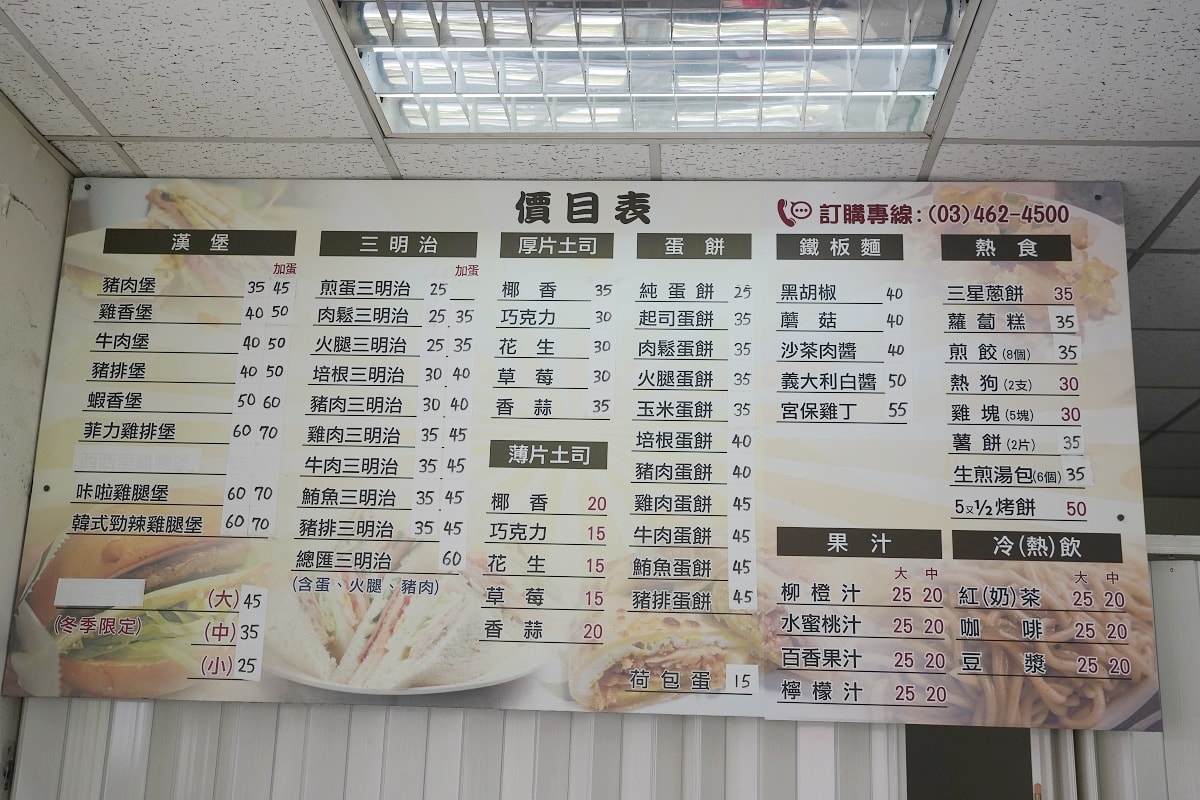 價目表
訂購專線:(03)462-4500
漢堡
加蛋
豬肉堡 35 45
雞香堡 40 50
牛肉堡 40 50
豬排堡 40 50
蝦香堡 50 60
菲力雞排堡 60 70
咔啦雞腿堡 60 70
韓式勁辣雞腿堡 60 70
(大) 45
(冬季限定) (中) 35
(小) 25
三明治
加蛋
煎蛋三明治 25
肉鬆三明治 25 35
火腿三明治 25 35
培根三明治 30 40
豬肉三明治 30 40
雞肉三明治 35 45
牛肉三明治 35 45
鮪魚三明治 35 45
豬排三明治 35 45
總匯三明治 60
(含蛋、火腿、豬肉)
厚片土司
椰香 35
巧克力 30
花生 30
草莓 30
香蒜 35
薄片土司
椰香 20
巧克力 15
花生 15
草莓 15
香蒜 20
蛋餅
純蛋餅 25
起司蛋餅 35
肉鬆蛋餅 35
火腿蛋餅 35
玉米蛋餅 35
培根蛋餅 40
豬肉蛋餅 40
雞肉蛋餅 45
牛肉蛋餅 45
鮪魚蛋餅 45
豬排蛋餅 45
荷包蛋 15
鐵板麵
黑胡椒 40
蘑菇 40
沙茶肉醬 40
義大利白醬 50
宮保雞丁 55
熱食
三星蔥餅 35
蘿蔔糕 35
煎餃(8個) 35
熱狗(2支) 30
雞塊(5塊) 30
薯餅(2片) 35
生煎湯包(6個) 35
5又1/2烤餅 50
果汁
大 中
柳橙汁 25 20
水蜜桃汁 25 20
百香果汁 25 20
檸檬汁 25 20
冷(熱)飲
大 中
紅(奶)茶 25 20
咖啡 25 20
豆漿 25 20